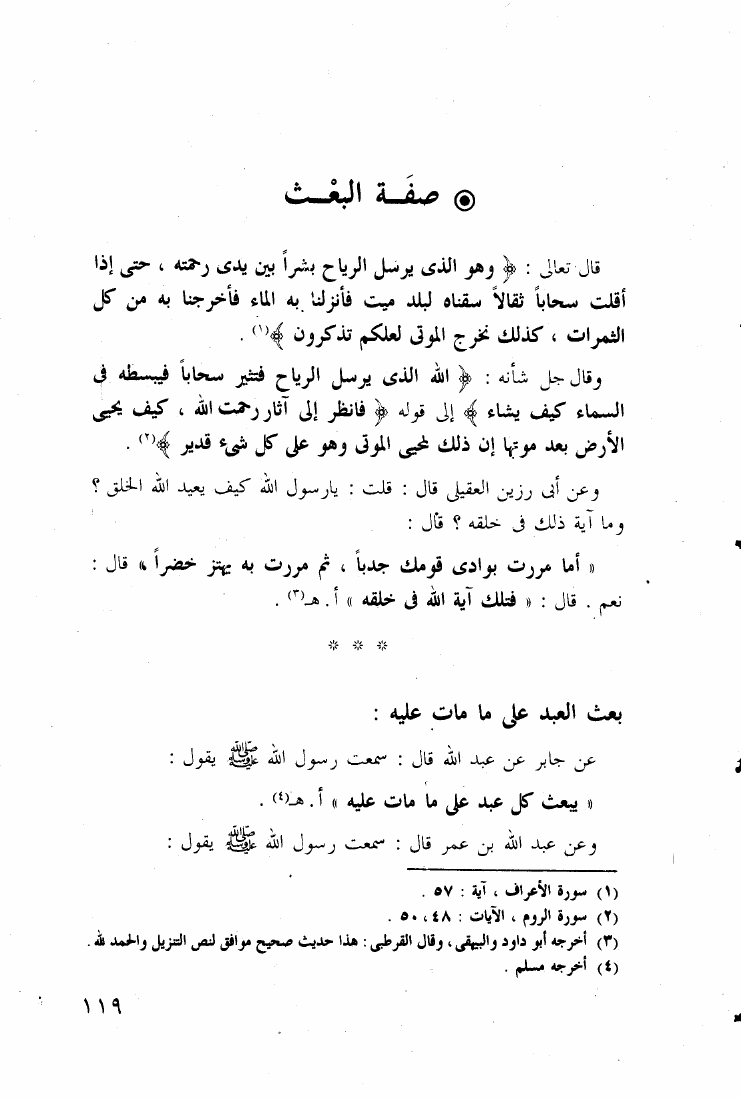 ◉ صفَــة البعْــث
قال تعالى : ﴿ وهو الذى يرسل الرياح بشراً بين يدى رحمته ، حتى إذا
أقلت سحاباً ثقالاً سقناه لبلد ميت فأنزلنا به الماء فأخرجنا به من كل
الثمرات ، كذلك نخرج الموتى لعلكم تذكرون ﴾(١) .
وقال جل شأنه : ﴿ الله الذى يرسل الرياح فتثير سحاباً فيبسطه فى
السماء كيف يشاء ﴾ إلى قوله ﴿ فانظر إلى آثار رحمت الله ، كيف يحيى
الأرض بعد موتها إن ذلك لمحيى الموتى وهو على كل شىء قدير ﴾(٢) .
وعن أبى رزين العقيلى قال : قلت : يارسول الله كيف يعيد الله الخلق ؟
وما آية ذلك فى خلقه ؟ قال :
« أما مررت بوادى قومك جدباً ، ثم مررت به يهتز خضراً » قال :
نعم . قال : « فتلك آية الله فى خلقه » أ . هـ(٣) .
* * *
بعث العبد على ما مات عليه :
عن جابر عن عبد الله قال : سمعت رسول الله ﷺ يقول :
« يبعث كل عبد على ما مات عليه » أ . هـ(٤) .
وعن عبد الله بن عمر قال : سمعت رسول الله ﷺ يقول :
(١) سورة الأعراف ، آية : ٥٧ .
(٢) سورة الروم ، الآيات : ٤٨ ، ٥٠ .
(٣) أخرجه أبو داود والبيهقى ، وقال القرطبى : هذا حديث صحيح موافق لنص التنزيل والحمد لله .
(٤) أخرجه مسلم .
١١٩